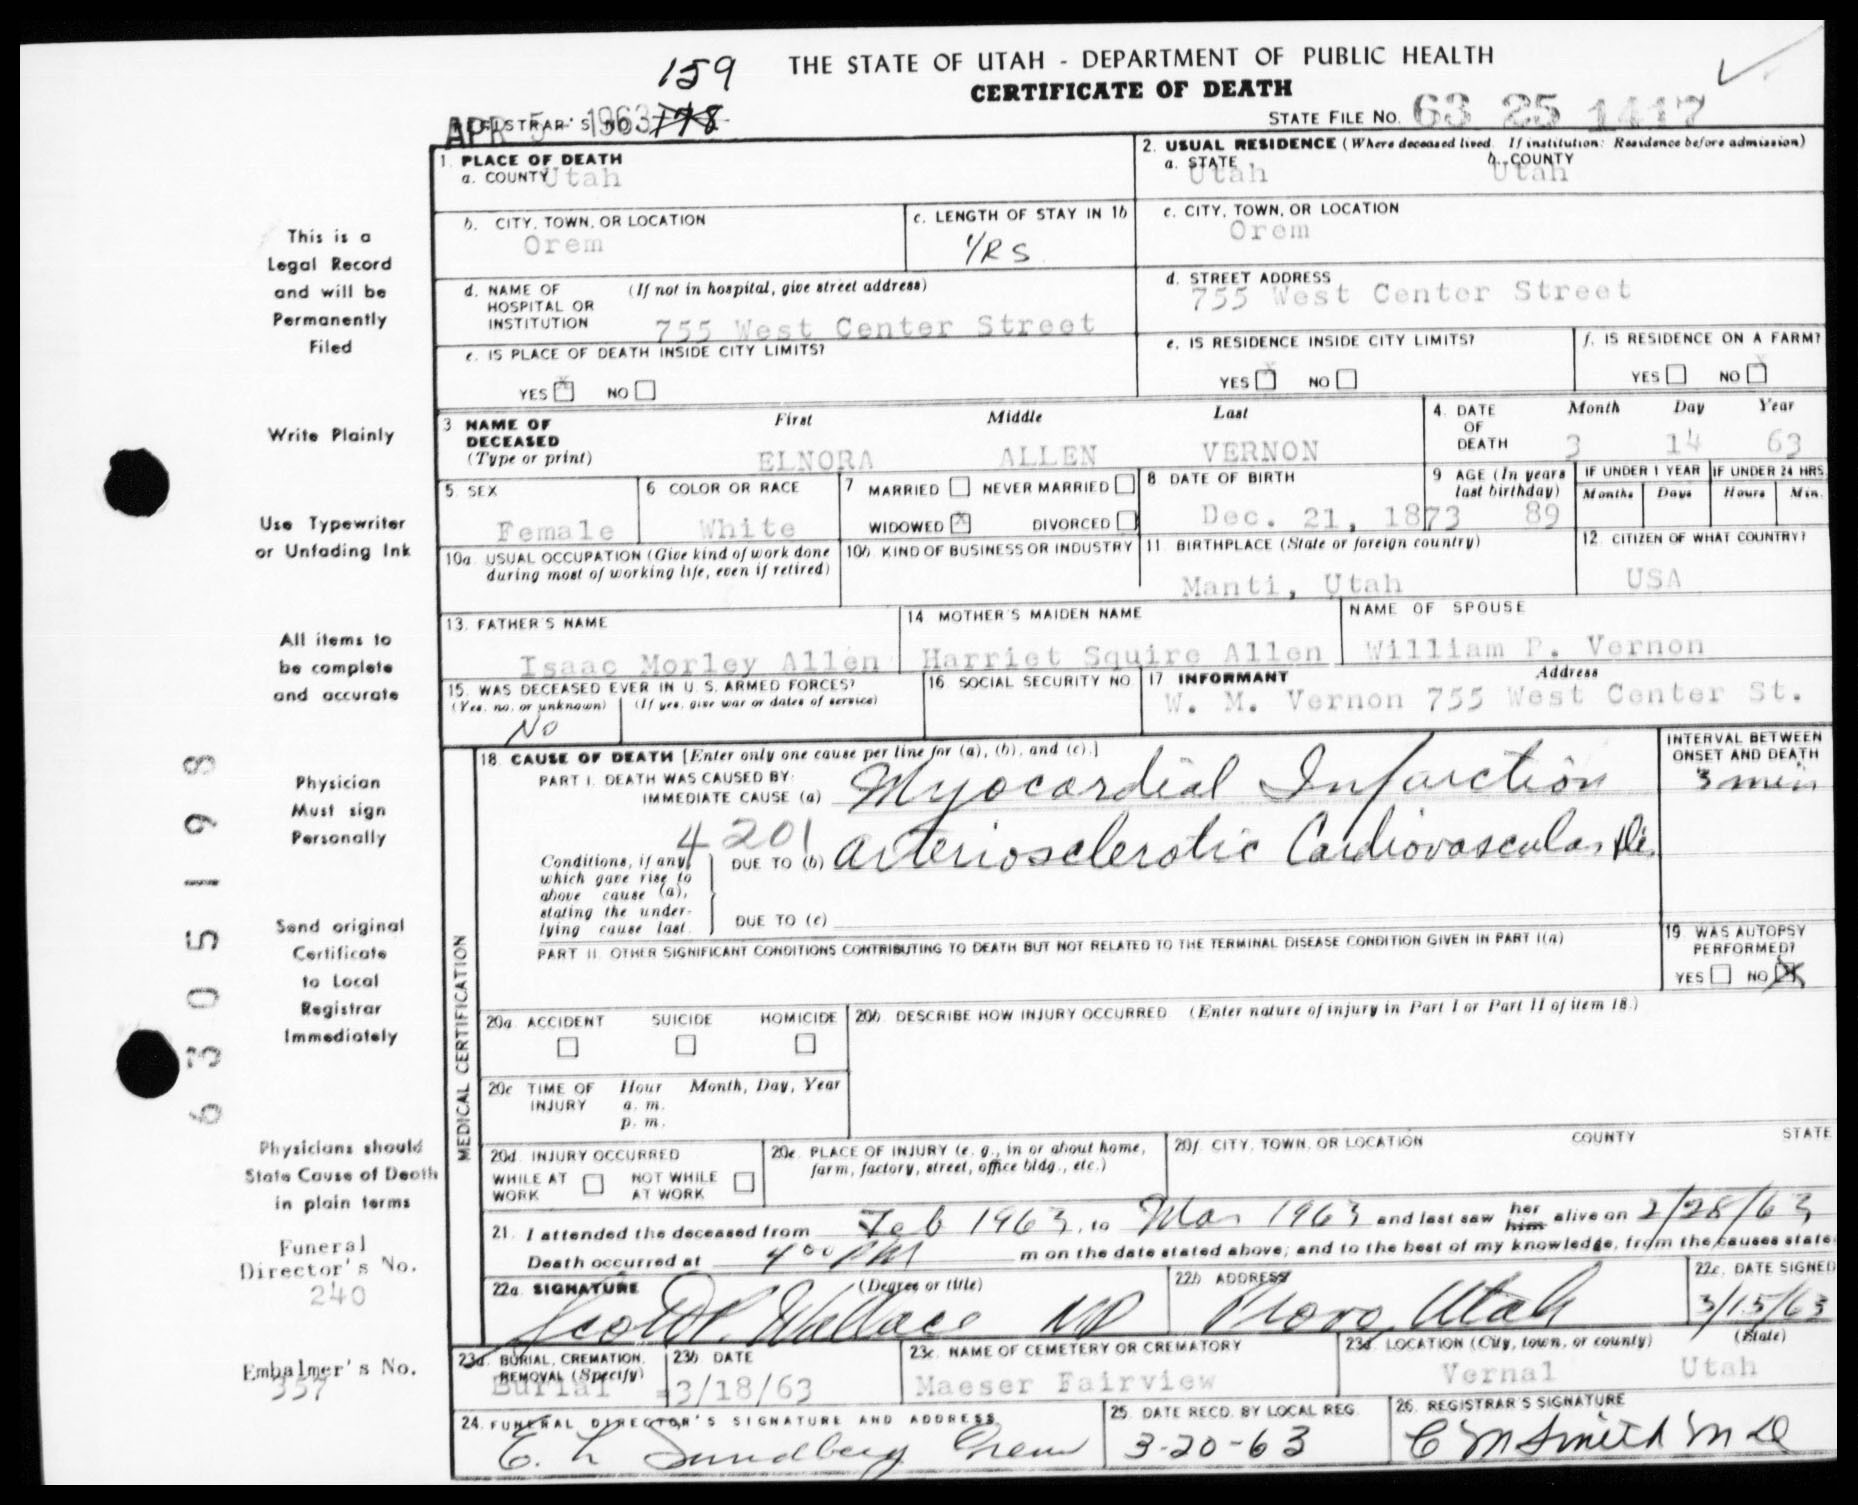 159
THE STATE OF UTAH - DEPARTMENT OF PUBLIC HEALTH
CERTIFICATE OF DEATH
APR 5 - 1963
REGISTRAR'S NO.
STATE FILE NO. 63 25 1417
1. PLACE OF DEATH
a. COUNTY Utah
2. USUAL RESIDENCE (Where deceased lived. If institution: Residence before admission)
a. STATE Utah b. COUNTY Utah
b. CITY, TOWN, OR LOCATION Orem
c. LENGTH OF STAY IN 1b YRS
c. CITY, TOWN, OR LOCATION Orem
d. NAME OF HOSPITAL OR INSTITUTION (If not in hospital, give street address)
755 West Center Street
d. STREET ADDRESS
755 West Center Street
e. IS PLACE OF DEATH INSIDE CITY LIMITS?
YES x NO
e. IS RESIDENCE INSIDE CITY LIMITS?
YES x NO
f. IS RESIDENCE ON A FARM?
YES NO x
3 NAME OF DECEASED (Type or print)
First Middle Last
ELNORA ALLEN VERNON
4. DATE OF DEATH Month Day Year
3 14 63
5. SEX Female
6 COLOR OR RACE White
7 MARRIED NEVER MARRIED
WIDOWED x DIVORCED
8 DATE OF BIRTH
Dec. 21, 1873
9 AGE (In years last birthday) 89
IF UNDER 1 YEAR Months Days
IF UNDER 24 HRS. Hours Min.
10a. USUAL OCCUPATION (Give kind of work done during most of working life, even if retired)
10b. KIND OF BUSINESS OR INDUSTRY
11. BIRTHPLACE (State or foreign country)
Manti, Utah
12. CITIZEN OF WHAT COUNTRY?
USA
13. FATHER'S NAME
Isaac Morley Allen
14 MOTHER'S MAIDEN NAME
Harriet Squire Allen
NAME OF SPOUSE
William P. Vernon
15. WAS DECEASED EVER IN U. S. ARMED FORCES?
(Yes, no, or unknown) (If yes, give war or dates of service)
No
16. SOCIAL SECURITY NO
17 INFORMANT Address
W. M. Vernon 755 West Center St.
MEDICAL CERTIFICATION
18. CAUSE OF DEATH [Enter only one cause per line for (a), (b), and (c).]
PART I. DEATH WAS CAUSED BY:
IMMEDIATE CAUSE (a) Myocardial Infarction
INTERVAL BETWEEN ONSET AND DEATH
3 min
4201
Conditions, if any, which gave rise to above cause (a), stating the underlying cause last.
DUE TO (b) Arteriosclerotic Cardiovascular Dis.
DUE TO (c)
PART II. OTHER SIGNIFICANT CONDITIONS CONTRIBUTING TO DEATH BUT NOT RELATED TO THE TERMINAL DISEASE CONDITION GIVEN IN PART I(a)
19. WAS AUTOPSY PERFORMED?
YES NO X
20a. ACCIDENT SUICIDE HOMICIDE
20b. DESCRIBE HOW INJURY OCCURRED (Enter nature of injury in Part I or Part II of item 18.)
20c TIME OF INJURY Hour Month, Day, Year
a. m.
p. m.
20d. INJURY OCCURRED
WHILE AT WORK NOT WHILE AT WORK
20e. PLACE OF INJURY (e. g., in or about home, farm, factory, street, office bldg., etc.)
20f. CITY, TOWN, OR LOCATION COUNTY STATE
21. I attended the deceased from Feb 1963, to Mar 1963 and last saw her him alive on 2/28/63
Death occurred at 4 00 PM m on the date stated above; and to the best of my knowledge, from the causes state
22a. SIGNATURE (Degree or title)
Scott P. Wallace MD
22b ADDRESS
Provo, Utah
22c. DATE SIGNED
3/15/63
23a. BURIAL, CREMATION, REMOVAL (Specify)
Burial
23b DATE
3/18/63
23c. NAME OF CEMETERY OR CREMATORY
Maeser Fairview
23d. LOCATION (City, town, or county) (State)
Vernal Utah
24. FUNERAL DIRECTOR'S SIGNATURE AND ADDRESS
E. L. Sundberg Orem
25. DATE RECD. BY LOCAL REG.
3-20-63
26. REGISTRAR'S SIGNATURE
C M Smith MD
This is a
Legal Record
and will be
Permanently
Filed
Write Plainly
Use Typewriter
or Unfading Ink
All items to
be complete
and accurate
Physician
Must sign
Personally
Send original
Certificate
to Local
Registrar
Immediately
Physicians should
State Cause of Death
in plain terms
Funeral
Director's No.
240
Embalmer's No.
357
63051 98